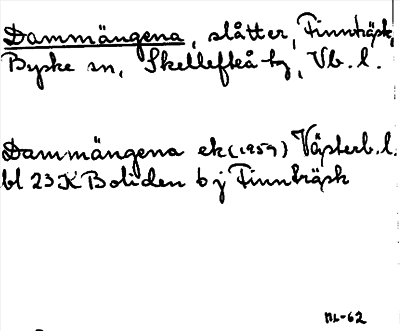 Dammängena, slåtter, Finnträsk,
Byske sn, Skellefteå tg, Vb. l.
Dammängena ek (1959) Västerb. l.
bl 23 K Boliden 6 j Finnträsk